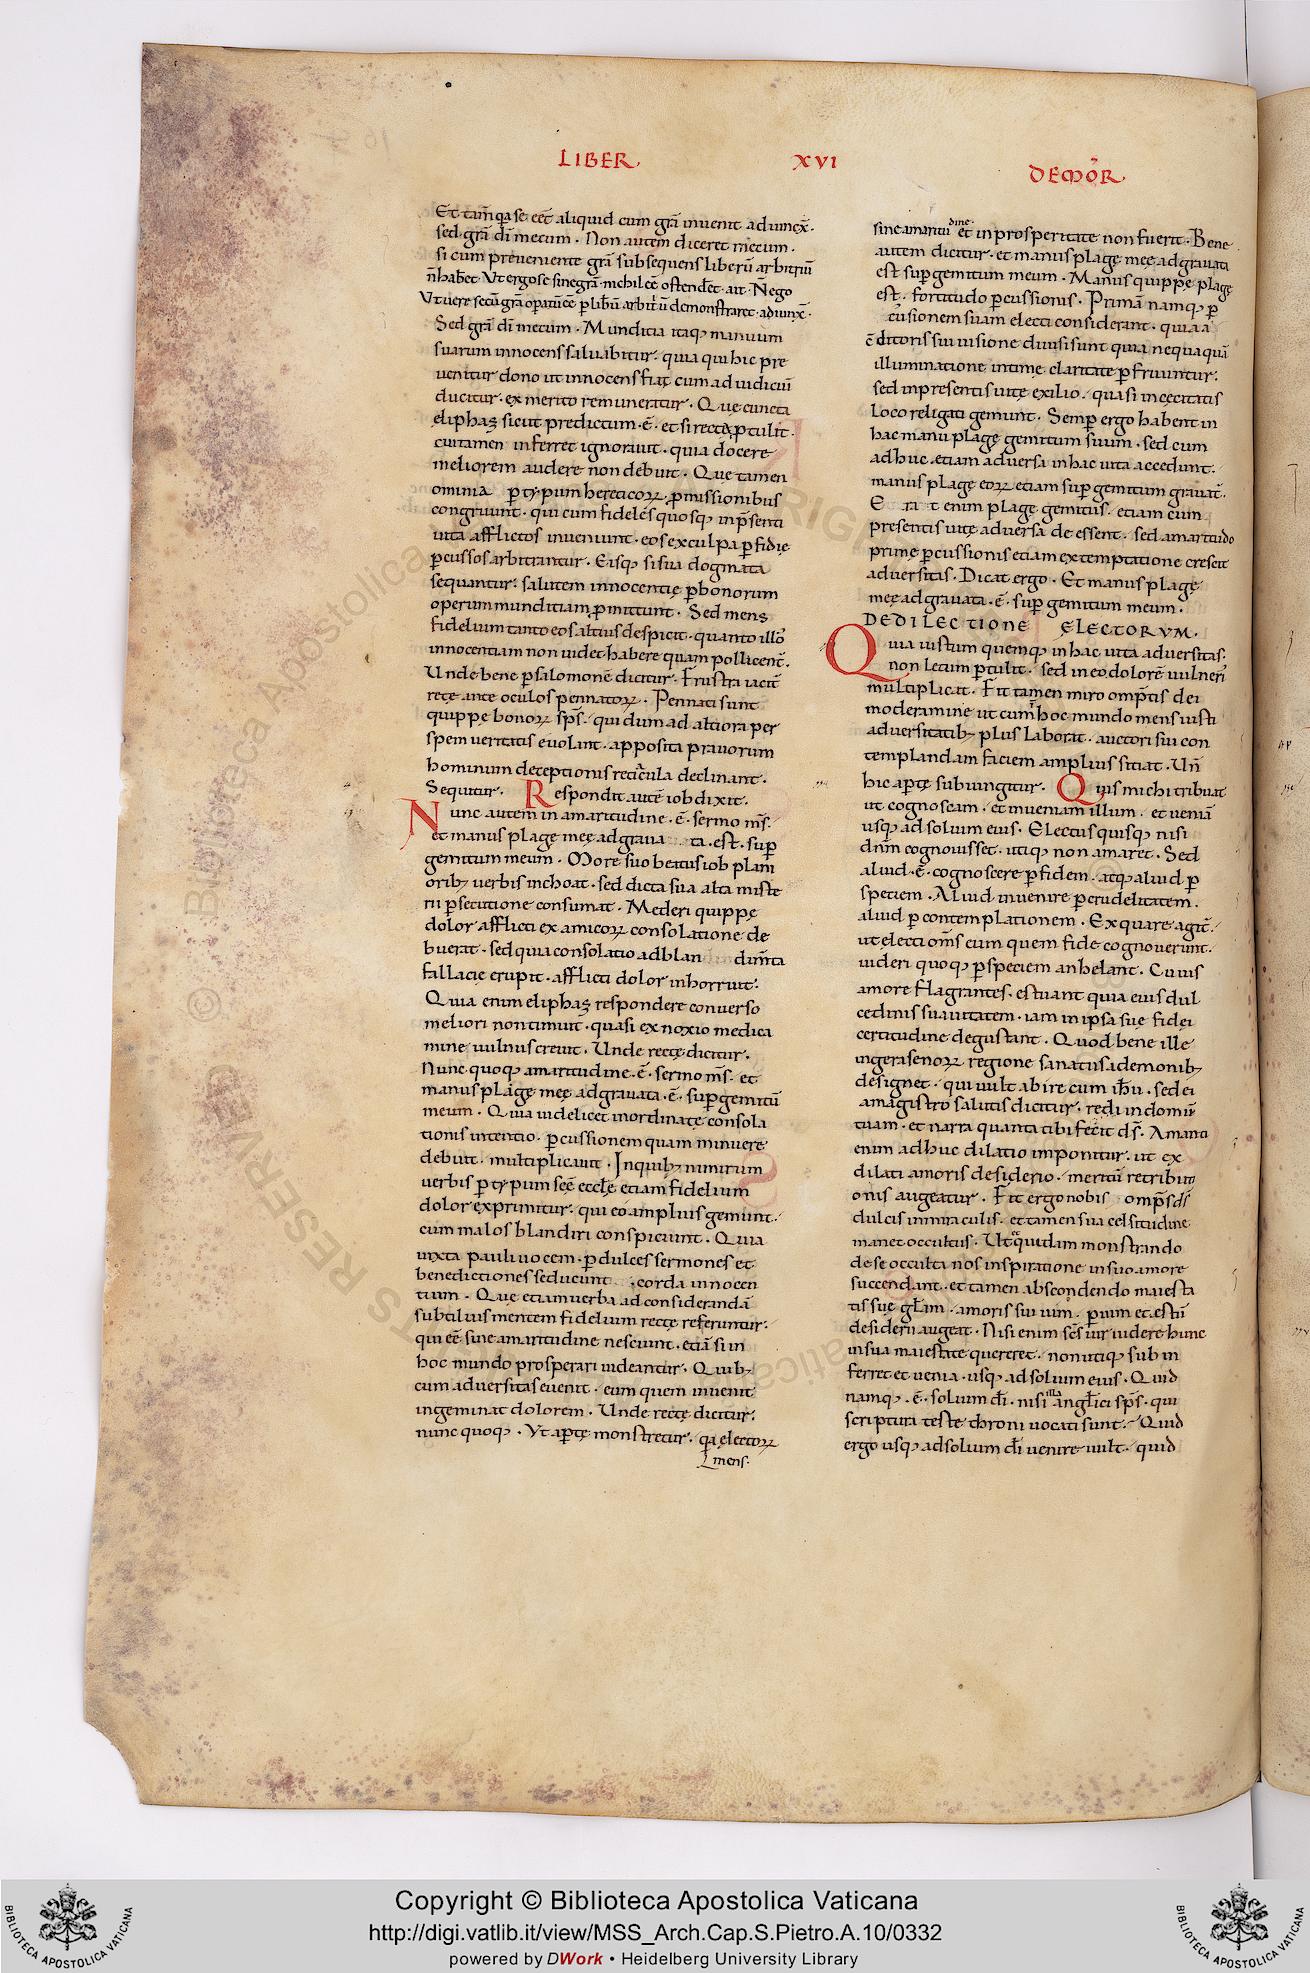 LIBER XVI DEMOR̃
Et tam̃ quase eēt aliquid cum grã invenit adiunx̃.
sed grã dĩ mecum. Non autem diceret mecum.
si cum preveniente grã subsequens liberũ arbitriũ
ñ haberet. Ut ergo se sine grã nichil eē ostendet. ait. Ñ ego
Ut vere secũ grã operatũ eē p̱ libũ arbitriũ demonstraret. adiunx̃.
Sed grã dĩ mecum. Munditia itaq; manuum
suarum innocens saluabitur. quia qui hic pre
uenitur dono ut innocens fiat. cum ad iudiciũ
ducitur. ex merito remuneratur. Que cuncta
eliphaz sicut predictum .ē. etsi recta p̱tulit.
cui tamen inferret ignoravit. quia docere
meliorem audere non debuit. Que tamen
omnia p̱ typum hereticoꝝ. p̱missionibus
congruunt. qui cum fideles quosq; in p̃senti
uita afflictos inveniunt. eos ex culpa p̱fidie
p̱cussos arbitrantur. Eisq; si sua dogmata
sequantur. salutem innocentie p̱ bonorum
operum munditiam p̱mittunt. Sed mens
fidelium tanto eos altius despicit. quanto illos
innocentiam non videt habere quam pollicent̃.
Unde bene p̱ salomonẽ dicitur. Frustra iacit̃
rete ante oculos pennatoꝝ. Pennati sunt
quippe bonoꝝ sp̃s. qui dum ad altiora per
spem veritatis evolant. apposita pravorum
hominum deceptionis reticula declinant.
Sequitur. Respondit autẽ iob dixit.
Nunc autem in amaritudine .ē. sermo m̃s.
et manus plage mee adgrava ta. est. sup̱
gemitum meum. More suo beatus iob plani
orib; verbis inchoat. sed dicta sua alta miste
rii p̱secutione consumat. Mederi quippe
dolor afflicti ex amicoꝝ consolatione de
buerat. sed quia consolatio ad blan dim̃ta
fallacie erupit. afflicti dolor inhorruit.
Quia enim eliphaz respondere converso
meliori non timuit. quasi ex noxio medica
mine vulnus crevit. Unde recte dicitur.
Nunc quoq; amaritudine .ē. sermo m̃s. et
manus plage mee adgravata .ē. sup̱ gemitũ
meum. Quia videlicet inordinate consola
tionis intentio. p̱cussionem quam minuere
debuit. multiplicavit. In quib; nimirum
verbis p̱ typum sēe eccl̃e etiam fidelium
dolor exprimitur. qui eo amplius gemunt.
cum malos blandiri conspiciunt. Quia
iuxta pauli vocem. p̱ dulces sermones et
benedictiones seducunt corda innocen
tium. Que etiam verba ad considerandã
subtilius mentem fidelium recte referuntur.
qui eē sine amaritudine nesciunt. etiã si in
hoc mundo prosperari videantur. Quib;
cum adversitas evenit. eum quem invenit
ingeminat dolorem. Unde recte dicitur.
nunc quoq;. Ut ap̱te monstretur. q̃a electoꝝ
mens.
sine amaritudine et in prosperitate non fuerit. Bene
autem dicitur. et manus plage mee adgravata
est sup̱ gemitum meum. Manus quippe plage
est. fortitudo p̱cussionis. Primã namq; p̱
cusionem suam electi considerant. quia a
cõditoris sui visione divisi sunt quia nequaquã
illuminatione intime claritate p̱fruuntur.
sed in presentis vite exilio. quasi in cecitatis
loco religati gemunt. Semp̱ ergo habent in
hac manu plage gemitum suum. sed cum
adhuc etiam adversa in hac vita accedunt.
manus plage eoꝝ etiam sup̱ gemitum gravat̃.
E ra t enim plage gemitus. etiam cum
presentis vite adversa deessent. sed amaritudo
prime p̱cussionis etiam ex temptatione crescit
adversitas. Dicat ergo. Et manus plage
mee adgravata .ē. sup̱ gemitum meum.
DE DILECTIONE ELECTORVM.
Quia iustum quemq; in hac vita adversitas.
non lecum p̱tulit. sed in eo dolorẽ vulneri
multiplicat. Fit tamen miro omp̃tis dei
moderamine ut cum hoc mundo mens iusti
adversitatib; plus laborat. auctori sui con
templandam faciem amplius sitiat. Uñ
hic ap̱te subiungitur. Quis michi tribuat
ut cognoscam. et inveniam illum. et veniã
usq; ad solium eius. Electus quisq; nisi
dñm cognovisset. utiq; non amaret. Sed
aliud .ē. cognoscere p̱ fidem. atq; aliud p̱
speciem. Aliud invenire p̱ crudelitatem.
aliud p̱ contemplationem. Ex qua re agit̃.
ut electi om̃s eum quem fide cognoverunt.
videri quoq; p̱ speciem anhelant. Cuius
amore flagrantes. estuant quia eius dul
cedinis suavitatem. iam in ipsa sue fidei
certitudine degustant. Quod bene ille
in gerasenoꝝ regione sanatus a demonib;
designet. qui vult abire cum ih̃u. sed ei
a magistro salutis dicitur. redi in domũ
tuam. et narra quanta tibi fecit d̃s. Amanti
enim adhuc dilatio imponitur. ut ex
dilati amoris desiderio. meritũ retributi
onis augeatur. Fit ergo nobis omp̃s d̃s
dulcis in miraculis. et tamen sua celsitudine
manet occultus. Ut quidam monstrando
de se occulta nos inspiratione in suo amore
succendant. et tamen abscondendo maiesta
tis sue gl̃am. amoris sui vim. p̱ nim et estũ
desiderii augeat. Nisi enim sc̃s vir videre hunc
in sua maiestate quereret. non utiq; sub in
ferret et venia. usq; ad solium eius. Quid
namq; .ē. solium d̃i. nisi illi angl̃ici sp̃s. qui
scriptura teste throni vocati sunt. Quid
ergo usq; ad solium d̃i venire vult. quid
Copyright © Biblioteca Apostolica Vaticana
http://digi.vatlib.it/view/MSS_Arch.Cap.S.Pietro.A.10/0332
powered by DWork • Heidelberg University Library
BIBLIOTECA APOSTOLICA VATICANA
BIBLIOTECA APOSTOLICA VATICANA